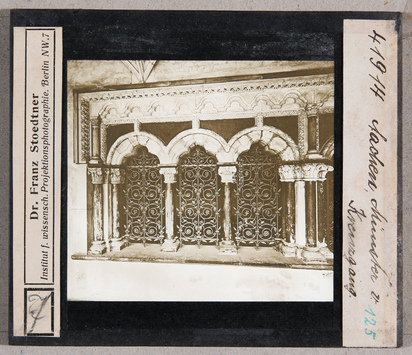 Dr. Franz Stoedtner
Institut f. wissensch. Projektionsphotographie, Berlin NW.7
41914 Aachen, Münster
Kreuzgang
125